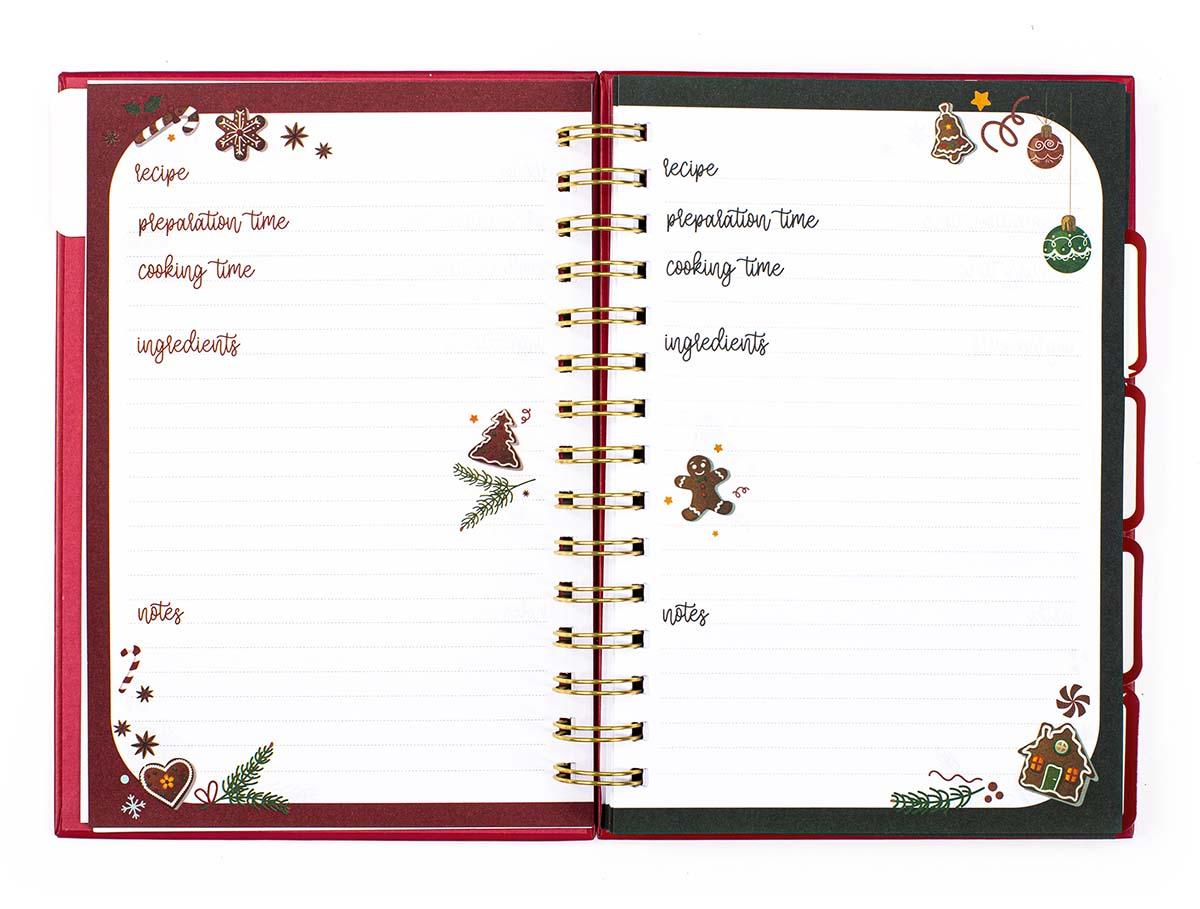 recipe
preparation time
cooking time
ingredients
notes
recipe
preparation time
cooking time
ingredients
notes